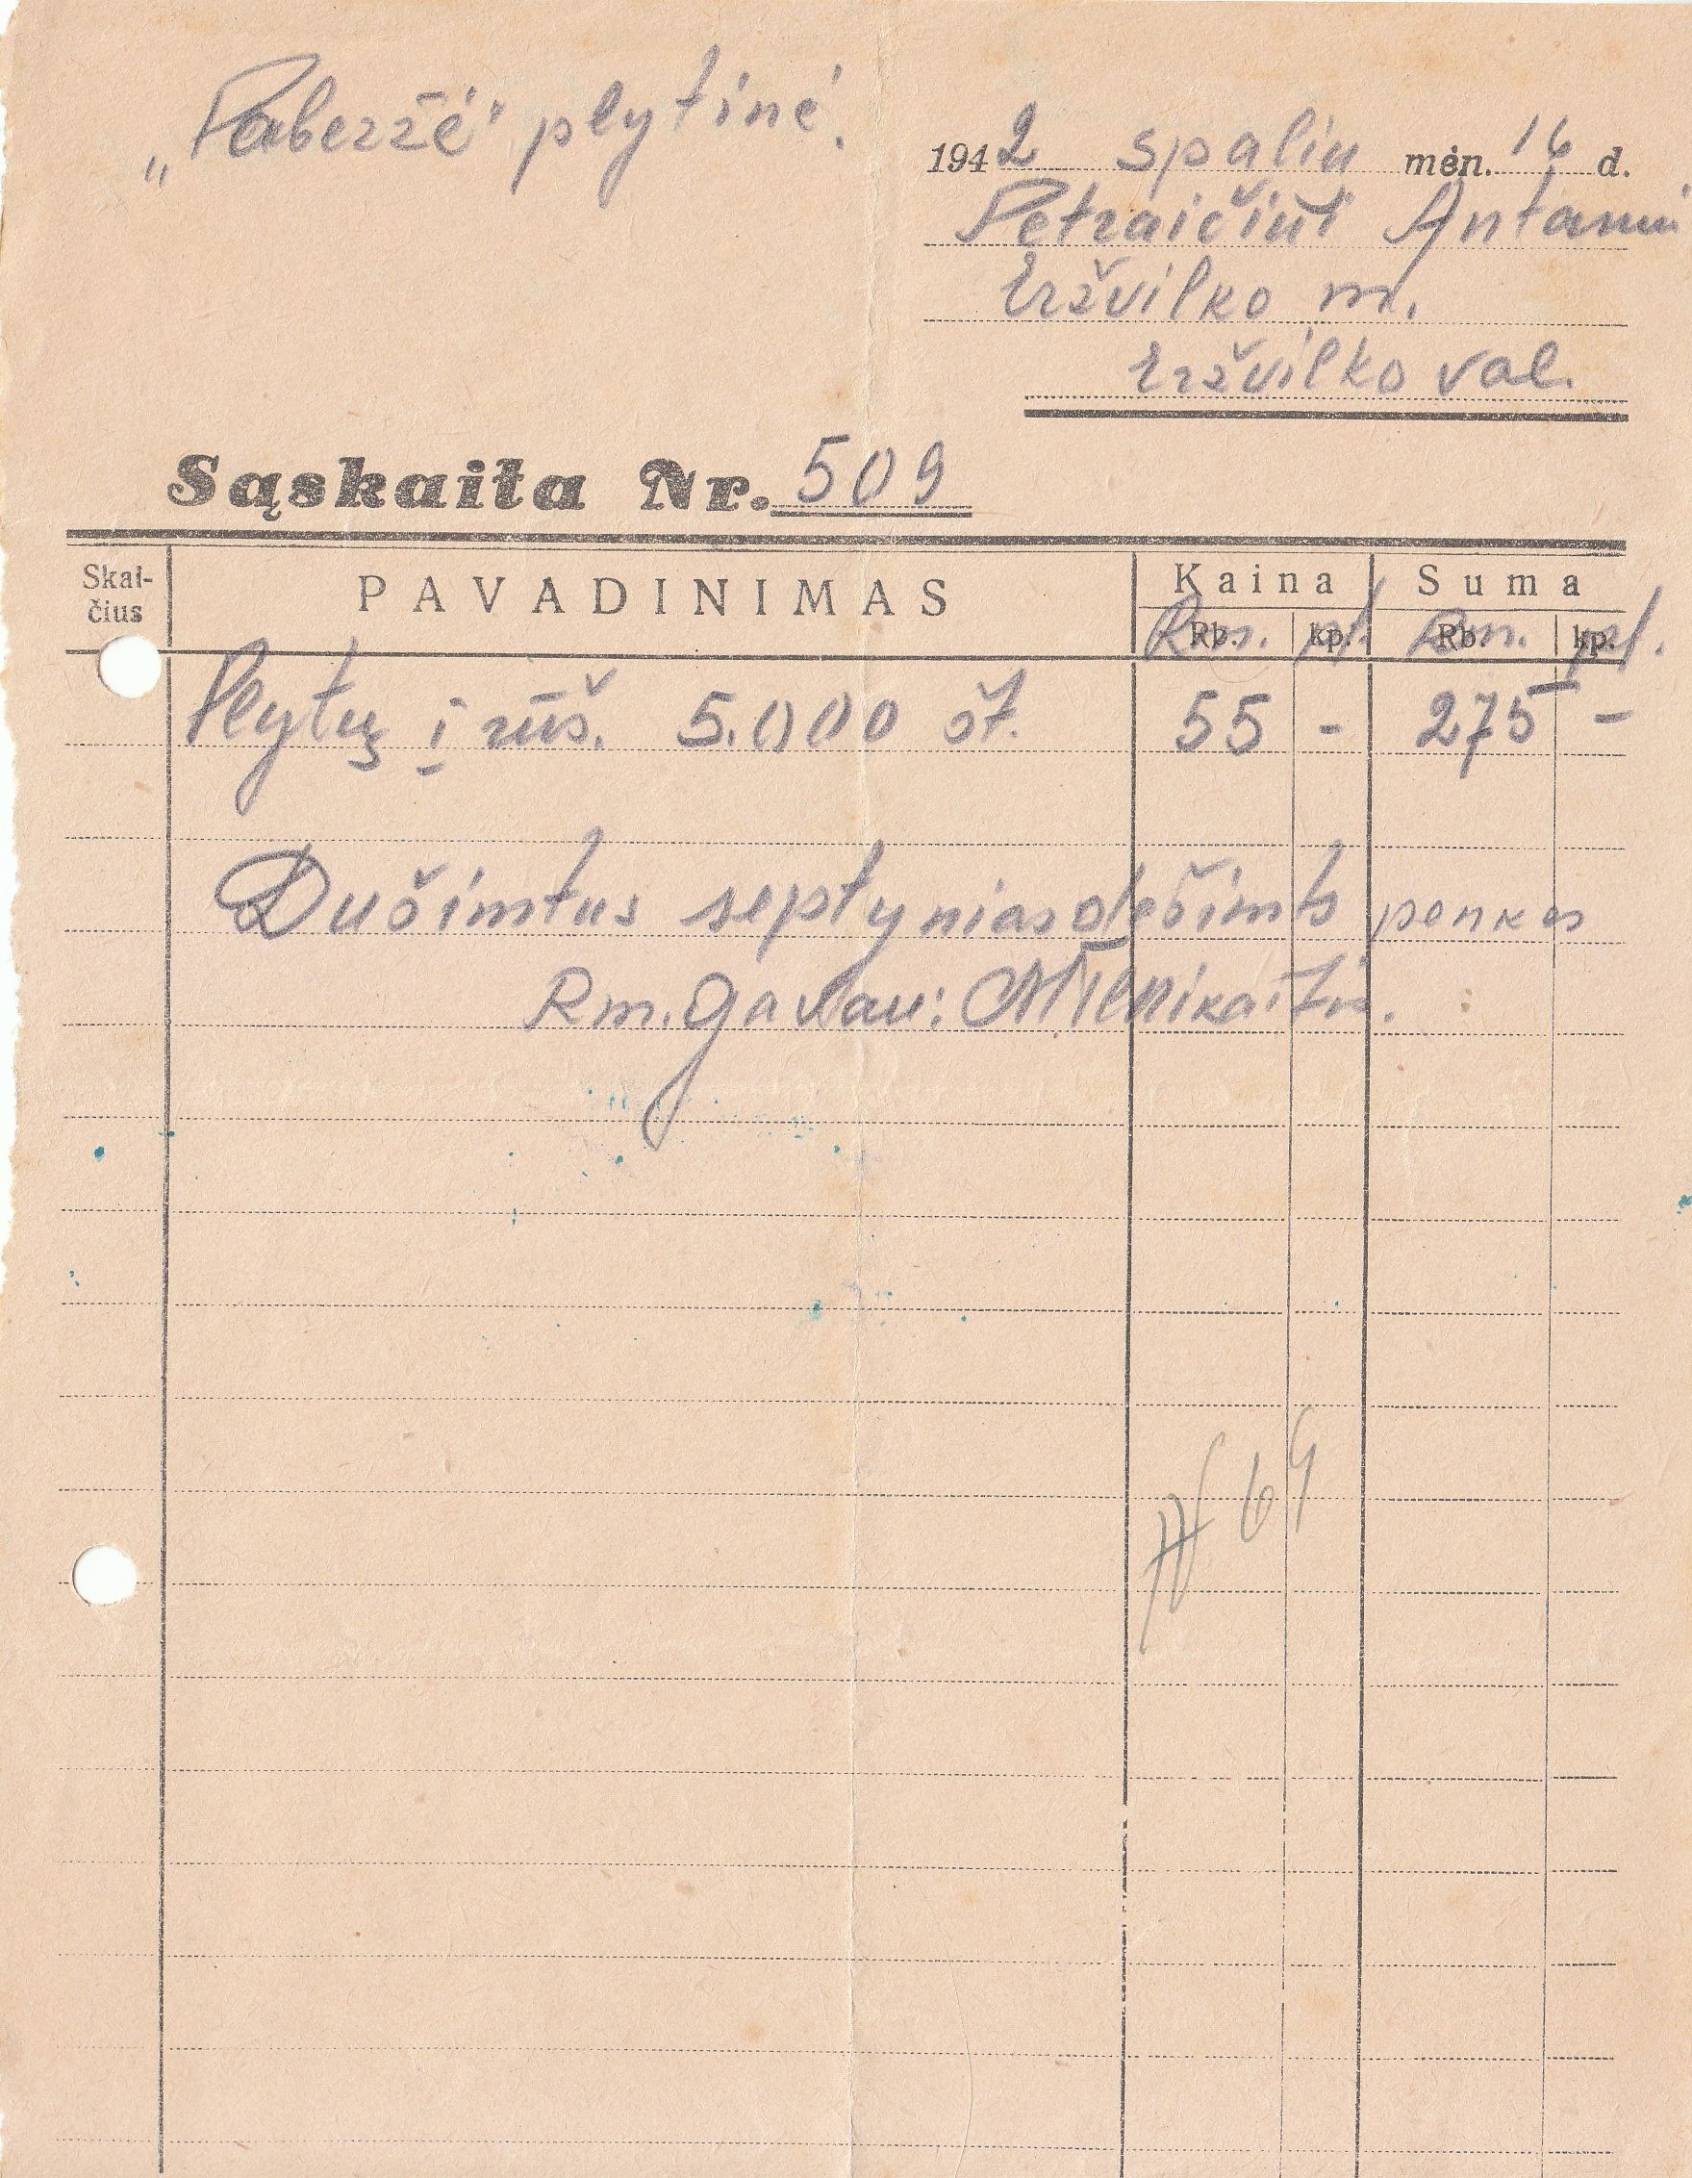 „Paberžė" plytinė.
1942 spalių mėn. 16 d.
Petraičiui Antanui
Eržvilko m.
Eržvilko val.
Sąskaita Nr. 509
Skaičius PAVADINIMAS Kaina Suma
Rb. kp. Rb. kp.
Rm. pf. Rm. pf.
Plytų I rūš. 5.000 št. 55 - 275 -
Dušimtus septyniasdešimts penkes
Rm. gavau:
№ 69